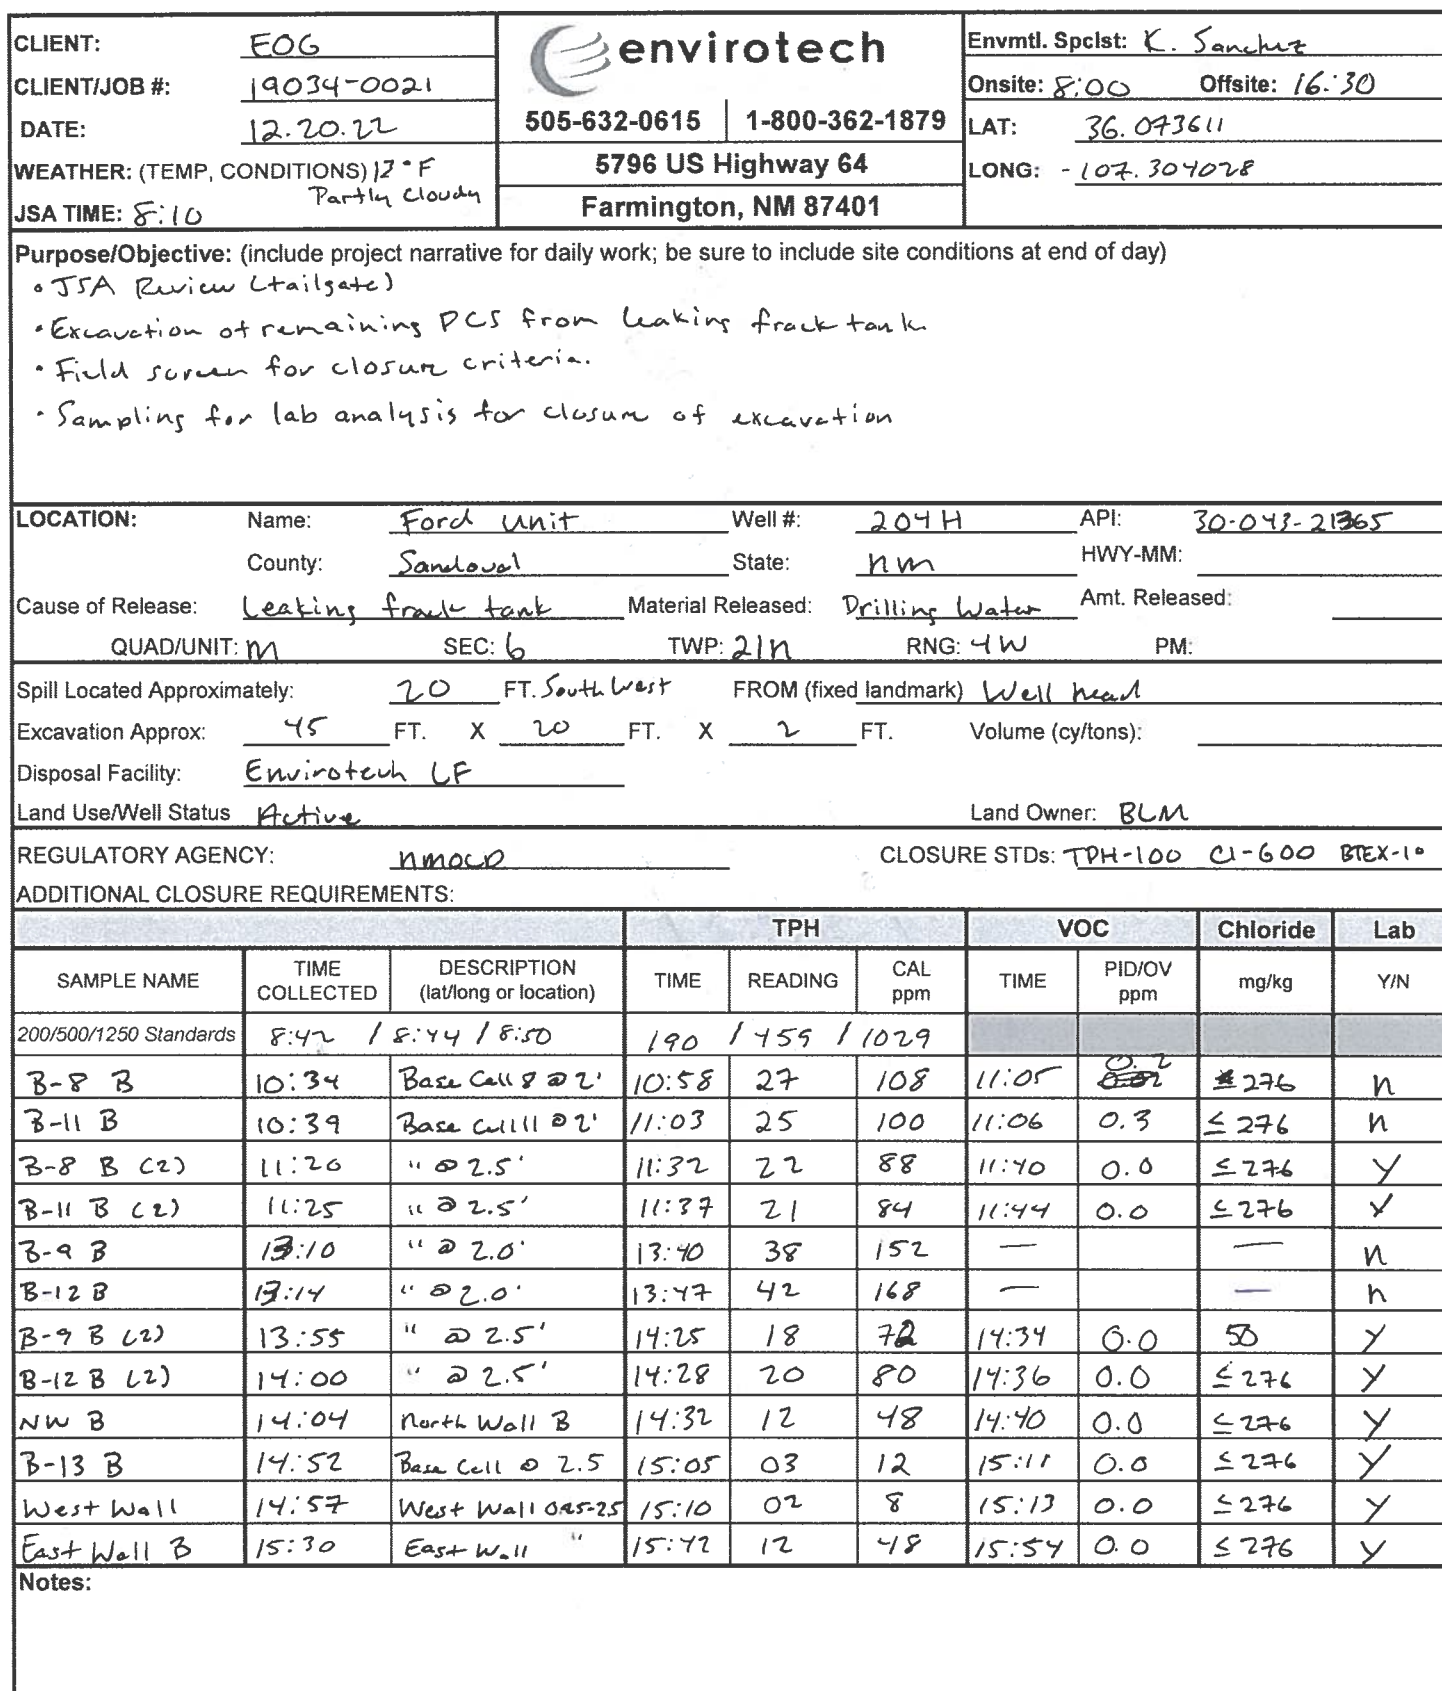 CLIENT: EOG
CLIENT/JOB #: 19034-0021
DATE: 12.20.22
WEATHER: (TEMP, CONDITIONS) 13°F
Partly Cloudy
JSA TIME: 8:10
envirotech
505-632-0615 | 1-800-362-1879
5796 US Highway 64
Farmington, NM 87401
Envmtl. Spclst: K. Sanchez
Onsite: 8:00 Offsite: 16:30
LAT: 36.073611
LONG: -107.304028
Purpose/Objective: (include project narrative for daily work; be sure to include site conditions at end of day)
• JSA Review (tailgate)
• Excavation of remaining PCS from leaking frack tank.
• Field screen for closure criteria.
• Sampling for lab analysis for closure of excavation
LOCATION: Name: Ford Unit Well #: 204H API: 30-043-21365
County: Sandoval State: nm HWY-MM:
Cause of Release: Leaking frack tank Material Released: Drilling Water Amt. Released:
QUAD/UNIT: M SEC: 6 TWP: 21n RNG: 4W PM:
Spill Located Approximately: 20 FT. South West FROM (fixed landmark) Well head
Excavation Approx: 45 FT. X 20 FT. X 2 FT. Volume (cy/tons):
Disposal Facility: Envirotech LF
Land Use/Well Status Active Land Owner: BLM
REGULATORY AGENCY: nmocd CLOSURE STDs: TPH-100 Cl-600 BTEX-10
ADDITIONAL CLOSURE REQUIREMENTS:
TPH VOC Chloride Lab
SAMPLE NAME TIME COLLECTED DESCRIPTION (lat/long or location) TIME READING CAL ppm TIME PID/OV ppm mg/kg Y/N
200/500/1250 Standards 8:42 / 8:44 / 8:50 190 / 459 / 1029
B-8 B 10:34 Base Cell 8 @ 2' 10:58 27 108 11:05 0.2 ≤ 276 n
B-11 B 10:39 Base Cell 11 @ 2' 11:03 25 100 11:06 0.3 ≤ 276 n
B-8 B (2) 11:20 " @ 2.5' 11:32 22 88 11:40 0.0 ≤ 276 Y
B-11 B (2) 11:25 " @ 2.5' 11:37 21 84 11:44 0.0 ≤ 276 Y
B-9 B 13:10 " @ 2.0' 13:40 38 152 — — n
B-12 B 13:14 " @ 2.0' 13:47 42 168 — — n
B-9 B (2) 13:55 " @ 2.5' 14:25 18 72 14:34 0.0 50 Y
B-12 B (2) 14:00 " @ 2.5' 14:28 20 80 14:36 0.0 ≤ 276 Y
NW B 14:04 North Wall B 14:32 12 48 14:40 0.0 ≤ 276 Y
B-13 B 14:52 Base Cell @ 2.5 15:05 03 12 15:11 0.0 ≤ 276 Y
West Wall 14:57 West Wall 15:10 02 8 15:13 0.0 ≤ 276 Y
East Wall B 15:30 East Wall " 15:42 12 48 15:54 0.0 ≤ 276 Y
Notes: